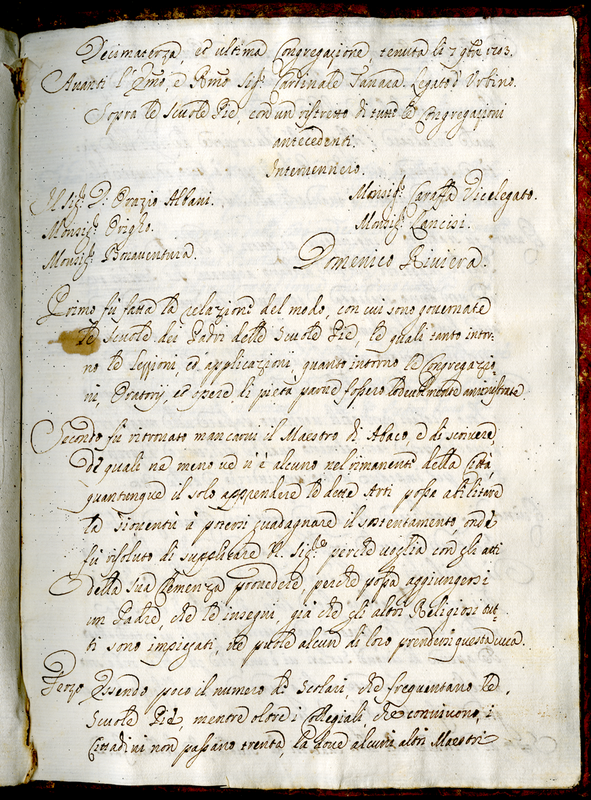 Decimaterza, et ultima Congregazione tenuta li 7 9bre 1703.
Avanti l'Emo, e Rmo Sigr. Cardinale Tanara Legato d'Urbino.
Sopra le Scuole Pie, con un ristretto di tutte le Congregazioni
antecedenti
Intervennero.
Il Sigr. D. Orazio Albani.
Monsigr. Caraffa Vicelegato.
Monsigr. Origho.
Monsigr. Lancisi.
Monsigr. Bonaventura.
Domenico Riviera.
Primo fù fatta la relazione del modo, con cui sono governate
le scuole dei Padri delle Scuole Pie, le quali tanto intor-
no le lezzioni, et applicazioni, quanto intorno le Congregazio-
ni, Oratorij, et opere di pietà parve fossero lodevolmente amministrate.
Secondo fù ritrovato mancarvi il Maestro di Abaco, e di scrivere,
de quali ne meno ve n'è alcuno nel rimanente della Città,
quantunque il solo apprendere le dette Arti possa abilitare
la Gioventù à potersi guadagnare il sostentamento, onde
fù risoluto di supplicare N. Sigre. perche voglia con gli atti
della sua Clemenza provedere, perche possa aggiungersi
un Padre, che le insegni, già che gli altri Religiosi tut-
ti sono impiegati, ne puole alcun di loro prendersi questa cura.
Terzo Essendo poco il numero de Scolari, che frequentano le
Scuole Pie, mentre oltre i Collegiali che convivono, i
Cittadini non passano trenta, la dove alcuni altri Maestri